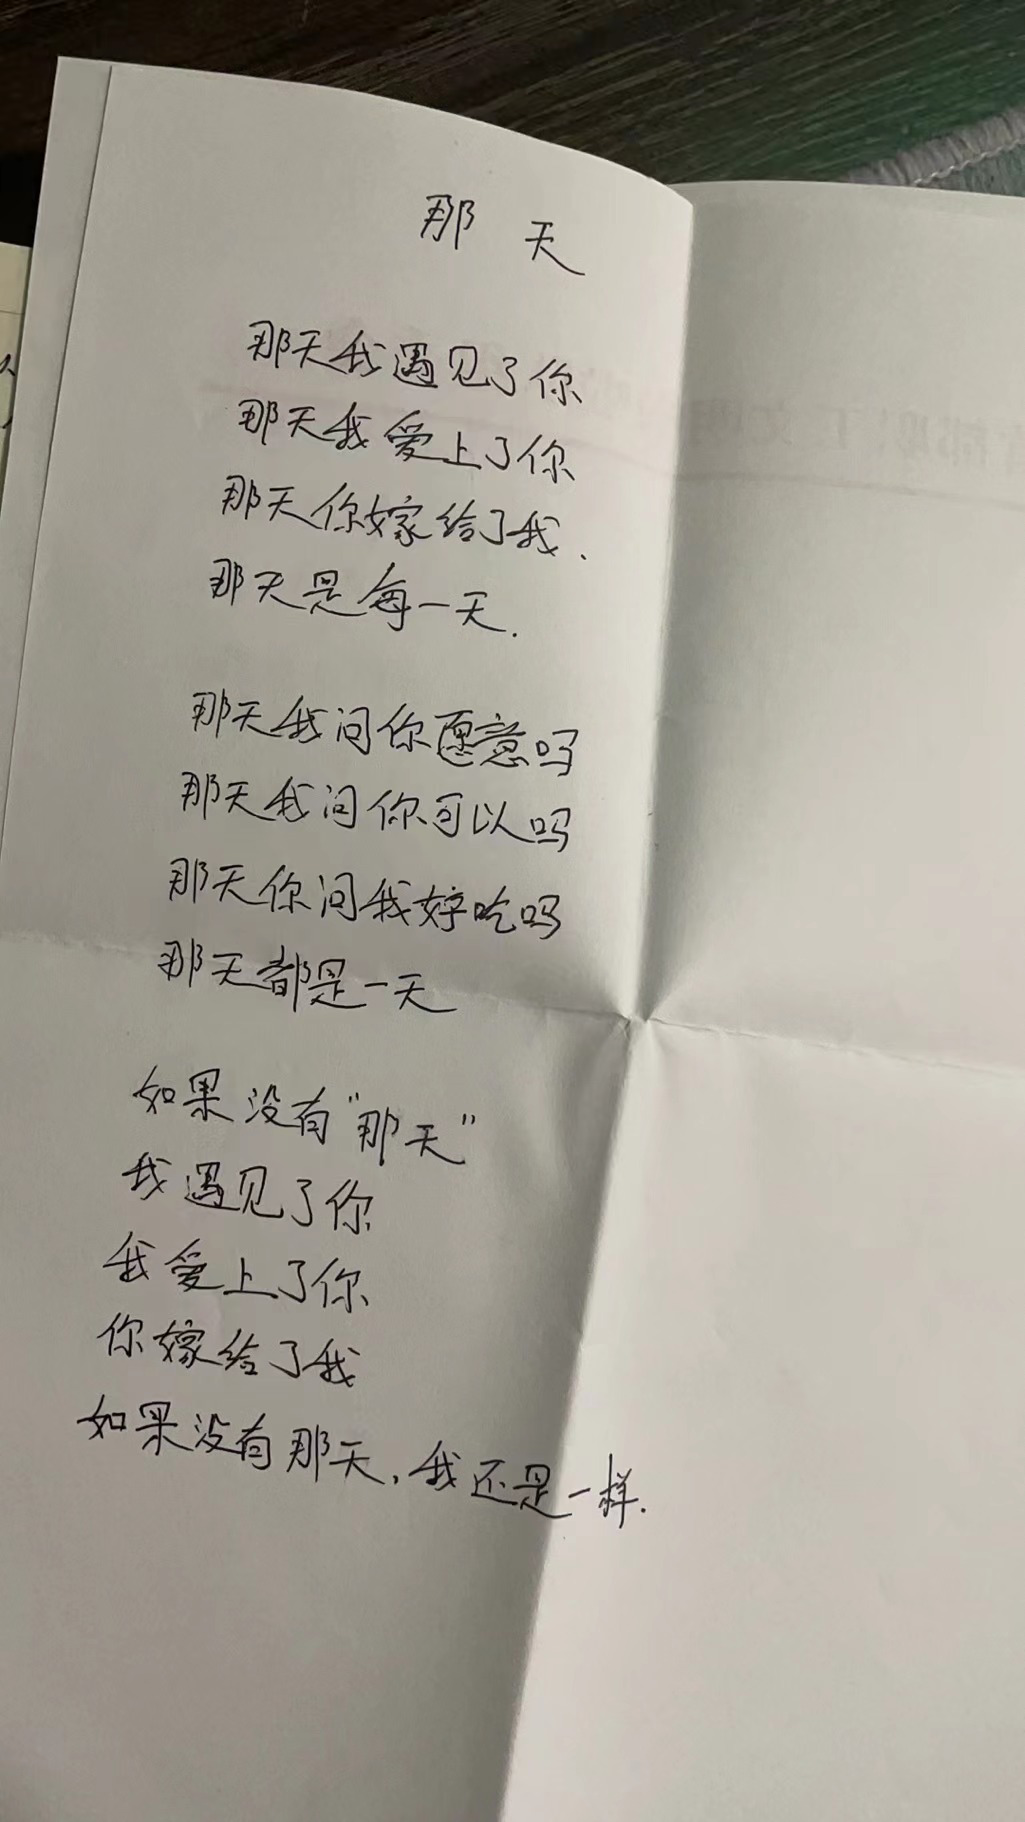 那天
那天我遇见了你
那天我爱上了你
那天你嫁给了我.
那天是每一天.
那天我问你愿意吗
那天我问你可以吗
那天你问我好吃吗
那天都是一天
如果没有“那天”
我遇见了你
我爱上了你
你嫁给了我
如果没有那天,我还是一样.